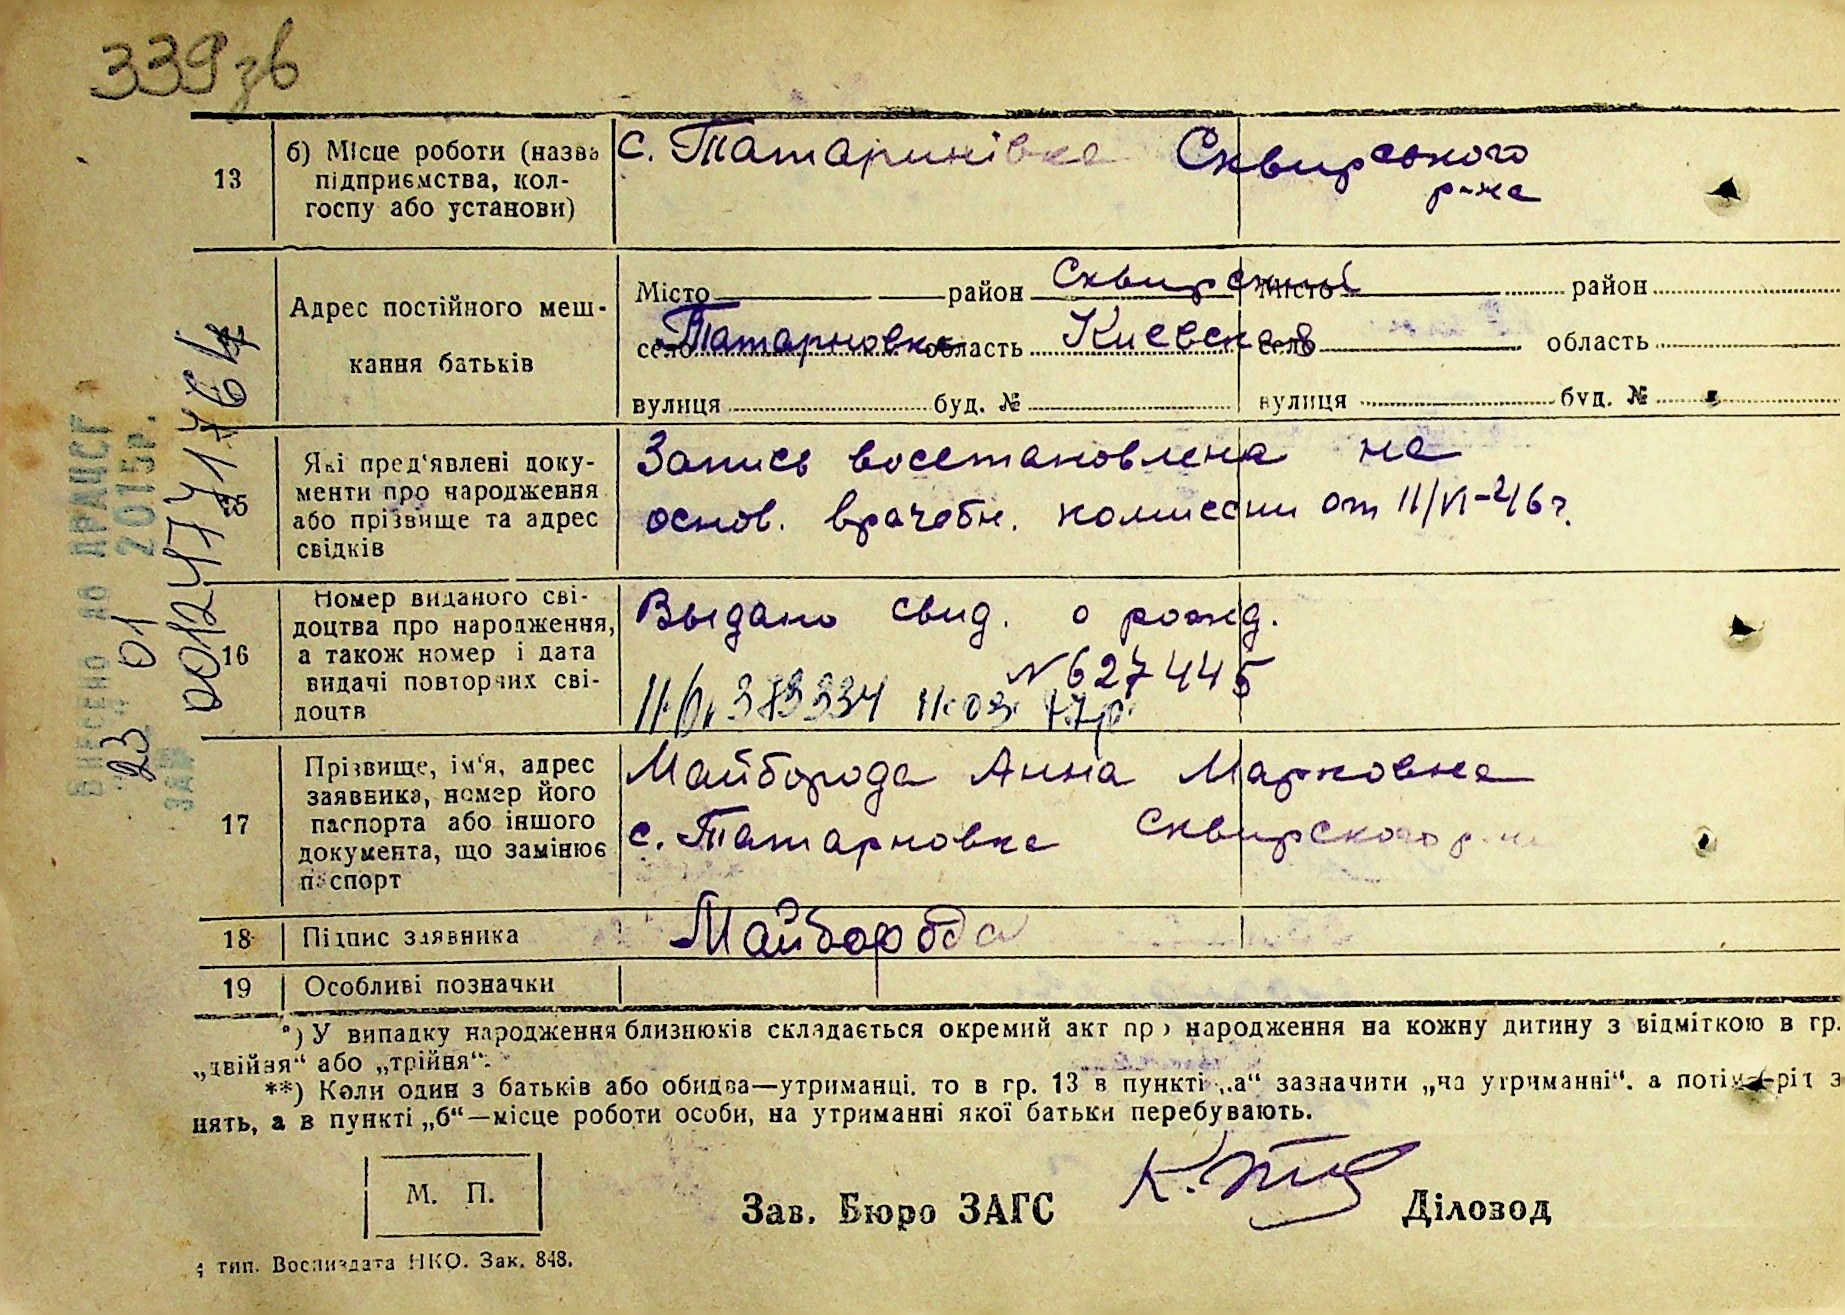 339 зв
13
б) Місце роботи (назва
підприємства, кол-
госпу або установи)
с. Татаринівка Сквирського
р-на
Адрес постійного меш-
кання батьків
Місто район Сквирский
село Татарновка область Киевская
вулиця буд. №
Місто район
село область
вулиця буд. №
15
Які пред'явлені доку-
менти про народження
або прізвище та адрес
свідків
Запись восстановлена на
основ. врачебн. комиссии от 11/VI-46 г.
16
Номер виданого сві-
доцтва про народження,
а також номер і дата
видачі повторних сві-
доцтв
Выдано свид. о рожд.
N 627445
17
Прізвище, ім'я, адрес
заявника, номер його
паспорта або іншого
документа, що замінює
паспорт
Майборода Анна Марковна
с. Татарновка Сквирского р-на
18
Підпис заявника
Майборода
19
Особливі позначки
*) У випадку народження близнюків складається окремий акт про народження на кожну дитину з відміткою в гр.
„двійня“ або „трійня“.
**) Коли один з батьків або обидва—утриманці, то в гр. 13 в пункті „а“ зазначити „на утриманні“, а потім
нять, а в пункті „б“—місце роботи особи, на утриманні якої батьки перебувають.
М. П.
Зав. Бюро ЗАГС
Діловод
тип. Воениздата НКО. Зак. 848.
Внесено до ДРАЦСГ
23 01 2015р.